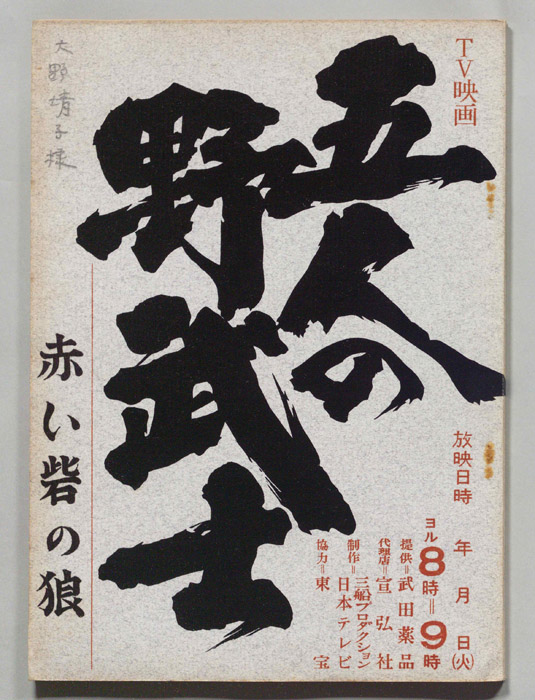 TV映画
五人の
野武士
赤い砦の狼
大野靖子様
放映日時 年 月 日(火)
ヨル8時=9時
提供=武田薬品
代理店=宣弘社
制作=三船プロダクション
日本テレビ
協力=東宝